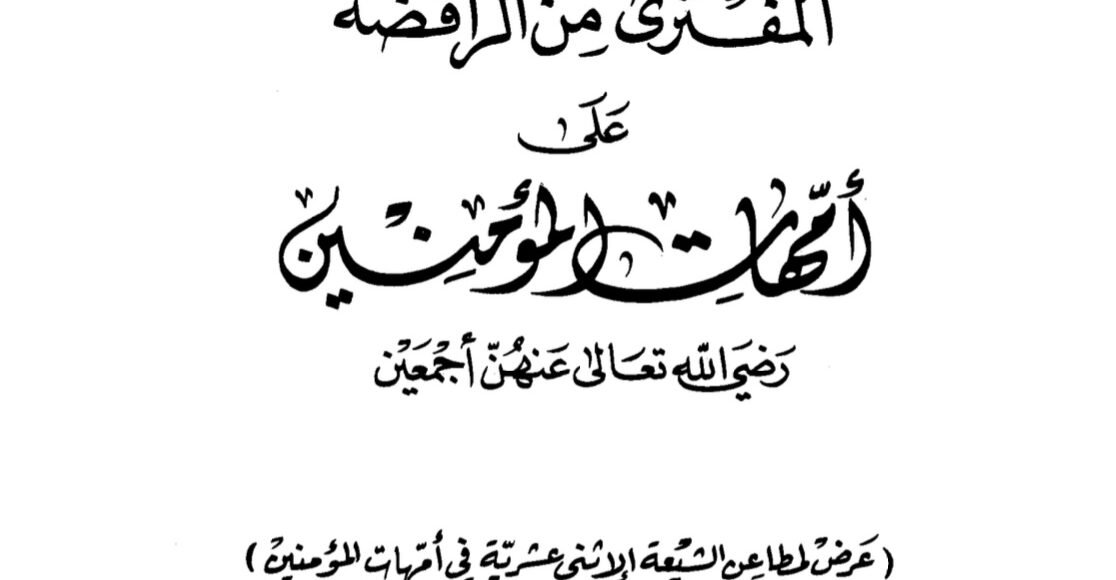 المفترى من الرافضة
عَلَى
أمّهات المؤمنين
رَضيَ الله تعَالى عَنهُنّ أجْمَعَيْن
(عَرضْ لمطاعِن الشيْعة الإثنى عشريّة في أمّهات المؤمنينْ)